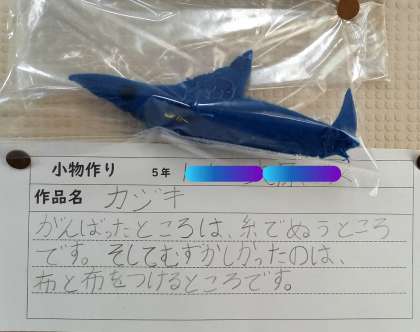 小物作り 5年
作品名 カジキ
がんばったところは、糸でぬうところ
です。そしてむずかしかったのは、
布と布をつけるところです。